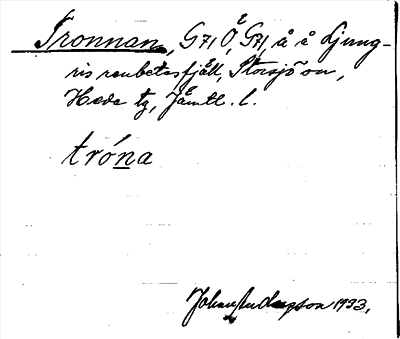 Tronnan, G71 Ö, G71, å å Ljung-
ris renbetesfjäll, Storsjö sn,
Hede tg, Jämtl. l.
tróna
Johan Andersson 1933.